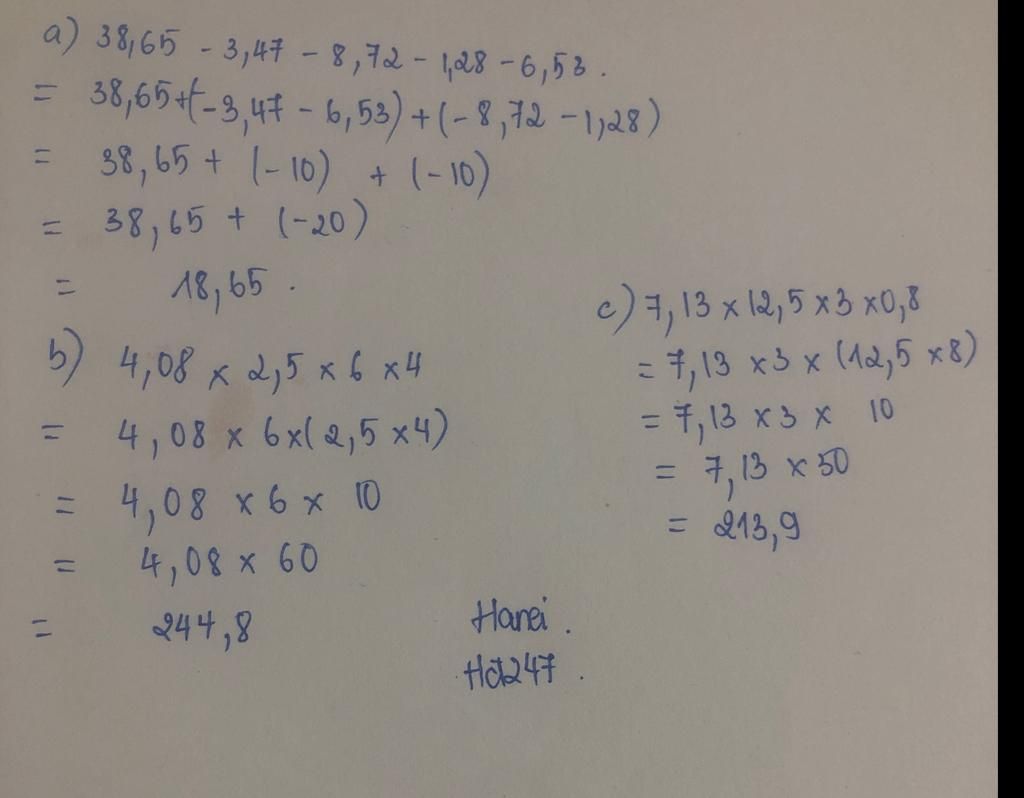 a) 38,65 - 3,47 - 8,72 - 1,28 - 6,53.
= 38,65 + (-3,47 - 6,53) + (-8,72 - 1,28)
= 38,65 + (-10) + (-10)
= 38,65 + (-20)
= 18,65.
b) 4,08 x 2,5 x 6 x 4
= 4,08 x 6 x (2,5 x 4)
= 4,08 x 6 x 10
= 4,08 x 60
= 244,8
c) 7,13 x 12,5 x 3 x 0,8
= 7,13 x 3 x (12,5 x 8)
= 7,13 x 3 x 10
= 7,13 x 30
= 213,9
Hanei.